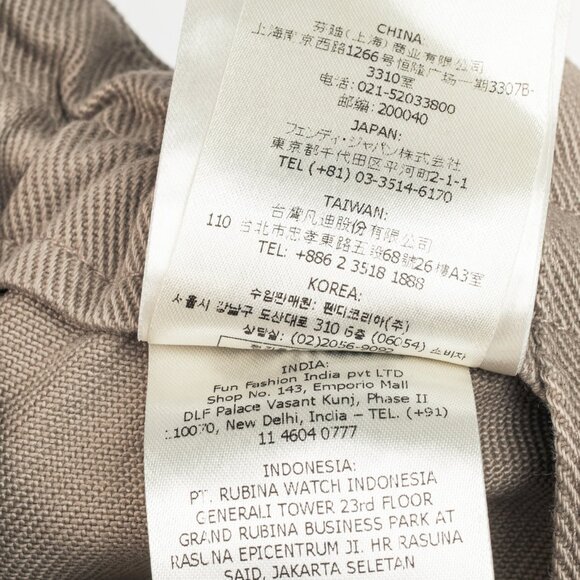 CHINA:
芬迪(上海)商业有限公司
南京西路1266号恒隆广场一期3307B-
3310室
电话: 021-52033800
邮编: 200040
JAPAN:
フェンディ・ジャパン株式会社
東京都千代田区平河町2-1-1
TEL (+81) 03-3514-6170
TAIWAN:
台灣凡迪股份有限公司
110 台北市忠孝東路五段68號26樓A3室
TEL: +886 2 3518 1888
KOREA:
수입판매원: 펜디코리아(주)
서울시 강남구 도산대로 310 6층 (06054) 소비자
상담실: (02)2056-9092
INDIA:
Fun Fashion India pvt LTD
Shop No. 143, Emporio Mall
DLF Palace Vasant Kunj, Phase II
110070, New Delhi, India – TEL. (+91)
11 4604 0777
INDONESIA:
PT. RUBINA WATCH INDONESIA
GENERALI TOWER 23rd FLOOR
GRAND RUBINA BUSINESS PARK AT
RASUNA EPICENTRUM JI. HR RASUNA
SAID, JAKARTA SELETAN